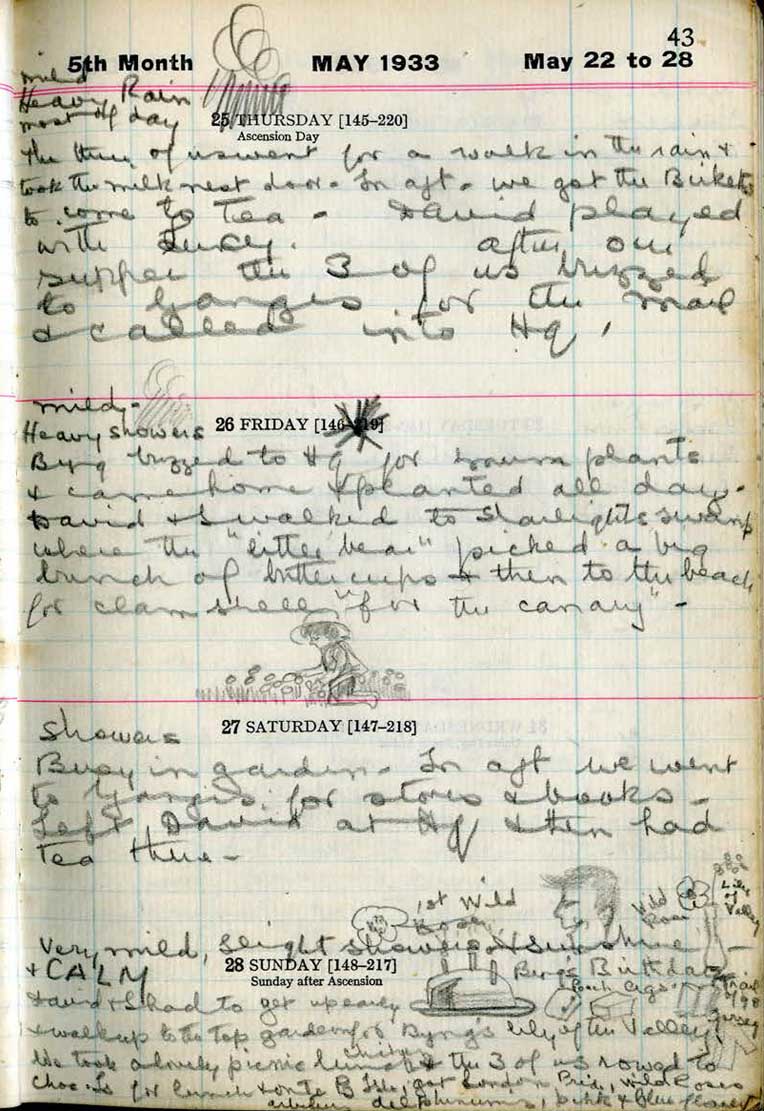 43
5th Month MAY 1933 May 22 to 28
mild
Heavy Rain
most of day
25 THURSDAY [145–220]
Ascension Day
the three of us went for a walk in the rain &
took the milk next door. In aft. we got the
to come to Tea - David played
with after our
supper the 3 of us buzzed
to Ganges for the mail
& called into Hq.
mild -
Heavy showers
26 FRIDAY [146–219]
Byng buzzed to Hq for plants
& came home & planted all day.
David & I walked to swamp
where the "little bear" picked a big
bunch of buttercups & then to the beach
for clam shell "for the canary" -
showers
27 SATURDAY [147–218]
Busy in garden. In aft we went
to Ganges for stores & books -
Left David at Hq & then had
Tea there -
1st Wild
Rose
Wild
Rose
Lily
of
Valley
Very mild, slight showers & sunshine
& CALM
28 SUNDAY [148–217]
Sunday after Ascension
Byng's Birthday
cigs.
Jersey
David & I had to get up early
& walk up to the top garden for Byng's lily of the Valley.
We took a lovely picnic lunch & the 3 of us rowed to
Choc. Is for lunch & onto Isle, got London Pride, wild Roses
delphiniums, pink & blue flowers